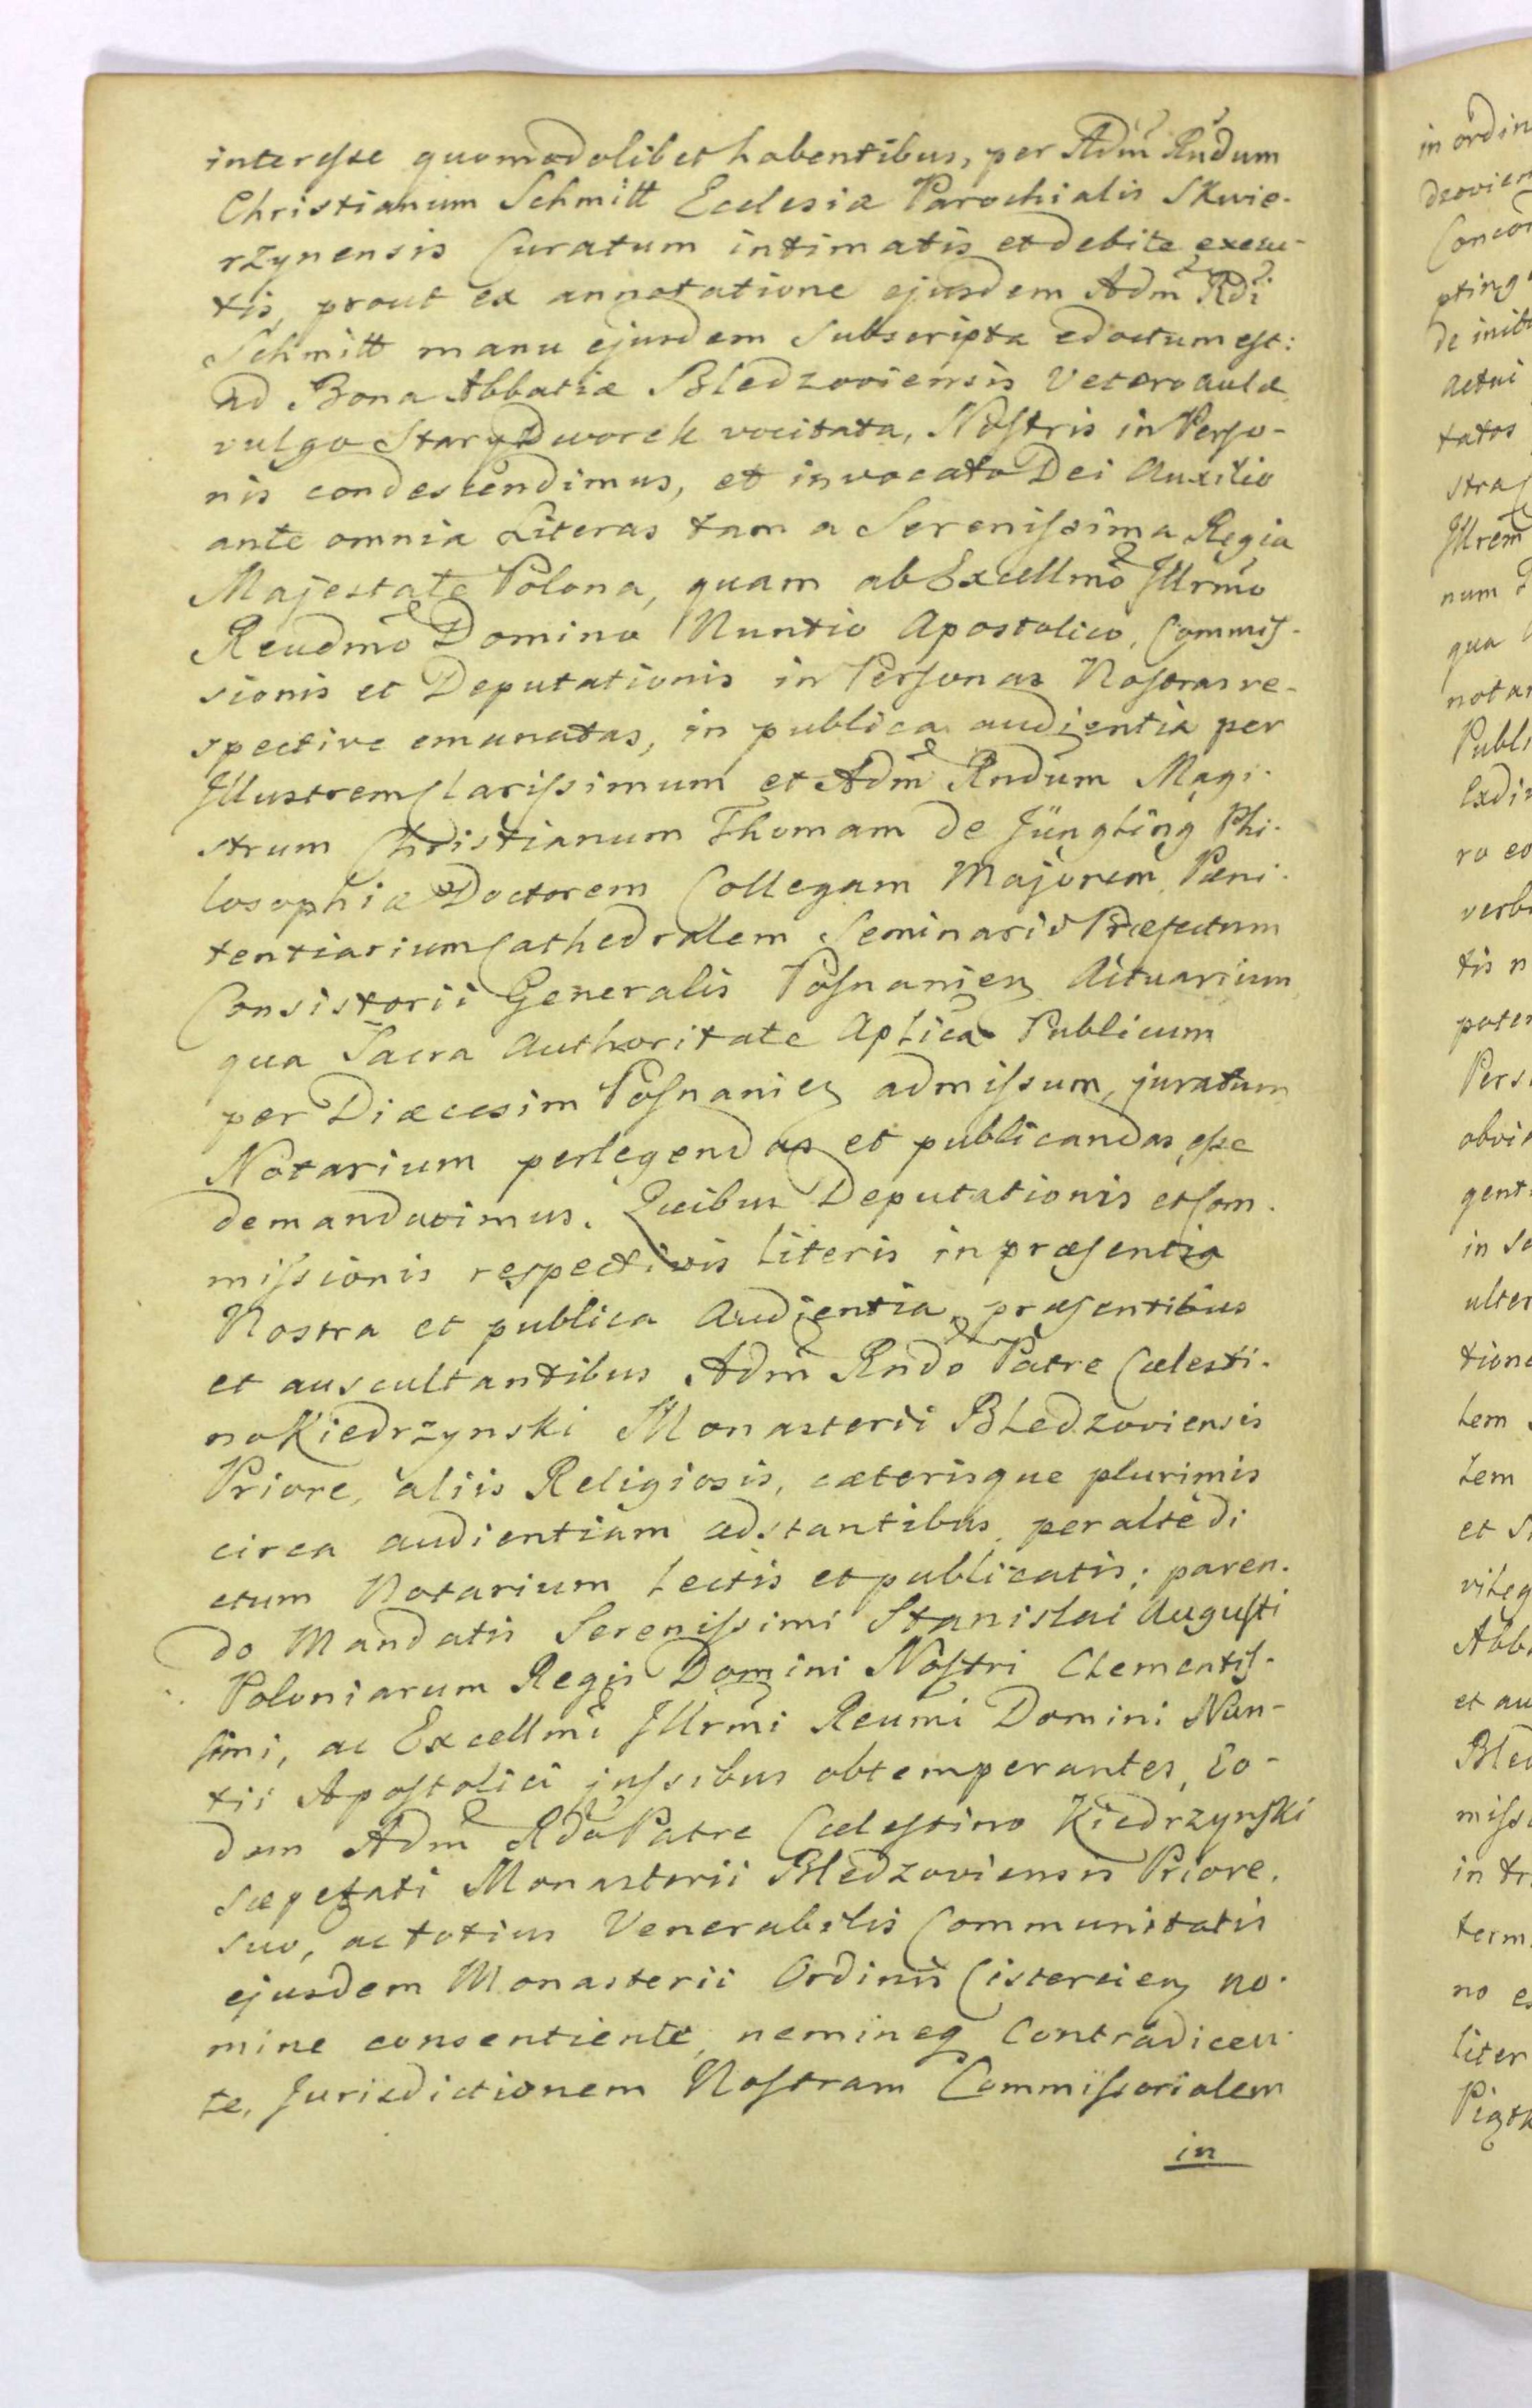 interesse quomodolibet habentibus, per Adm̃ Rñdum
Christianum Schmitt Ecclesiæ Parochialis Skwie-
rzynensis Curatum intimatis et debite execu-
tis, prout ex annotatione ejusdem Adm̃ Rdi
Schmitt manu ejusdem Subscripta edoctum est:
ad Bona Abbatiæ Bledzoviensis Veteroaulæ
vulgo Stary Dworek vocitata, Nostris in Perso-
nis condescendimus, et invocato Dei Auxilio
ante omnia Literas tam a Serenissima Regia
Majestate Polona, quam ab Excellmo Illrmo
Reudmo Domino Nuntio Apostolico, Commis-
sionis et Deputationis in Personas Nostras re-
spective emanatas, in publica audientia per
Illustrem Clarissimum et Adm̃ Rndum Magi-
strum Christianum Thomam de Jüngling Phi-
losophiæ Doctorem Collegam Majorem, Pæni-
tentiarium Cathedralem Seminarii Præfectum
Consistorii Generalis Posnanien Actuarium
qua Sacra Authoritate Aplica Publicum
per Diæcesim Posnanien admissum, juratum
Notarium perlegendas et publicandas esse
demandavimus. Quibus Deputationis et Com-
missionis respectivis Literis in præsentia
Nostra et publica Audientia, præsentibus
et auscultantibus Adm̃ Rndo Patre Cælesti-
no Kiedrzynski Monasterii Bledzoviensis
Priore, aliis Religiosis, cæterisque plurimis
circa audientiam adstantibus, per altedi
ctum Notarium Lectis et publicatis; paren-
do Mandatis Serenissimi Stanislai Augusti
Poloniarum Regis Domini Nostri Clementis-
simi, ac Excellmi Illrmi Reumi Domini Nun-
tii Apostolici jussibus obtemperantes, Eo-
dem Adm̃ Rdo Patre Cælestino Kiedrzynski
sæpefati Monasterii Bledzoviensis Priore,
suo, ac totius Venerabilis Communitatis
ejusdem Monasterii Ordinis Cistercien no-
mine consentiente, nemineq Contradicen-
te, Jurisdictionem Nostram Commissorialem
in